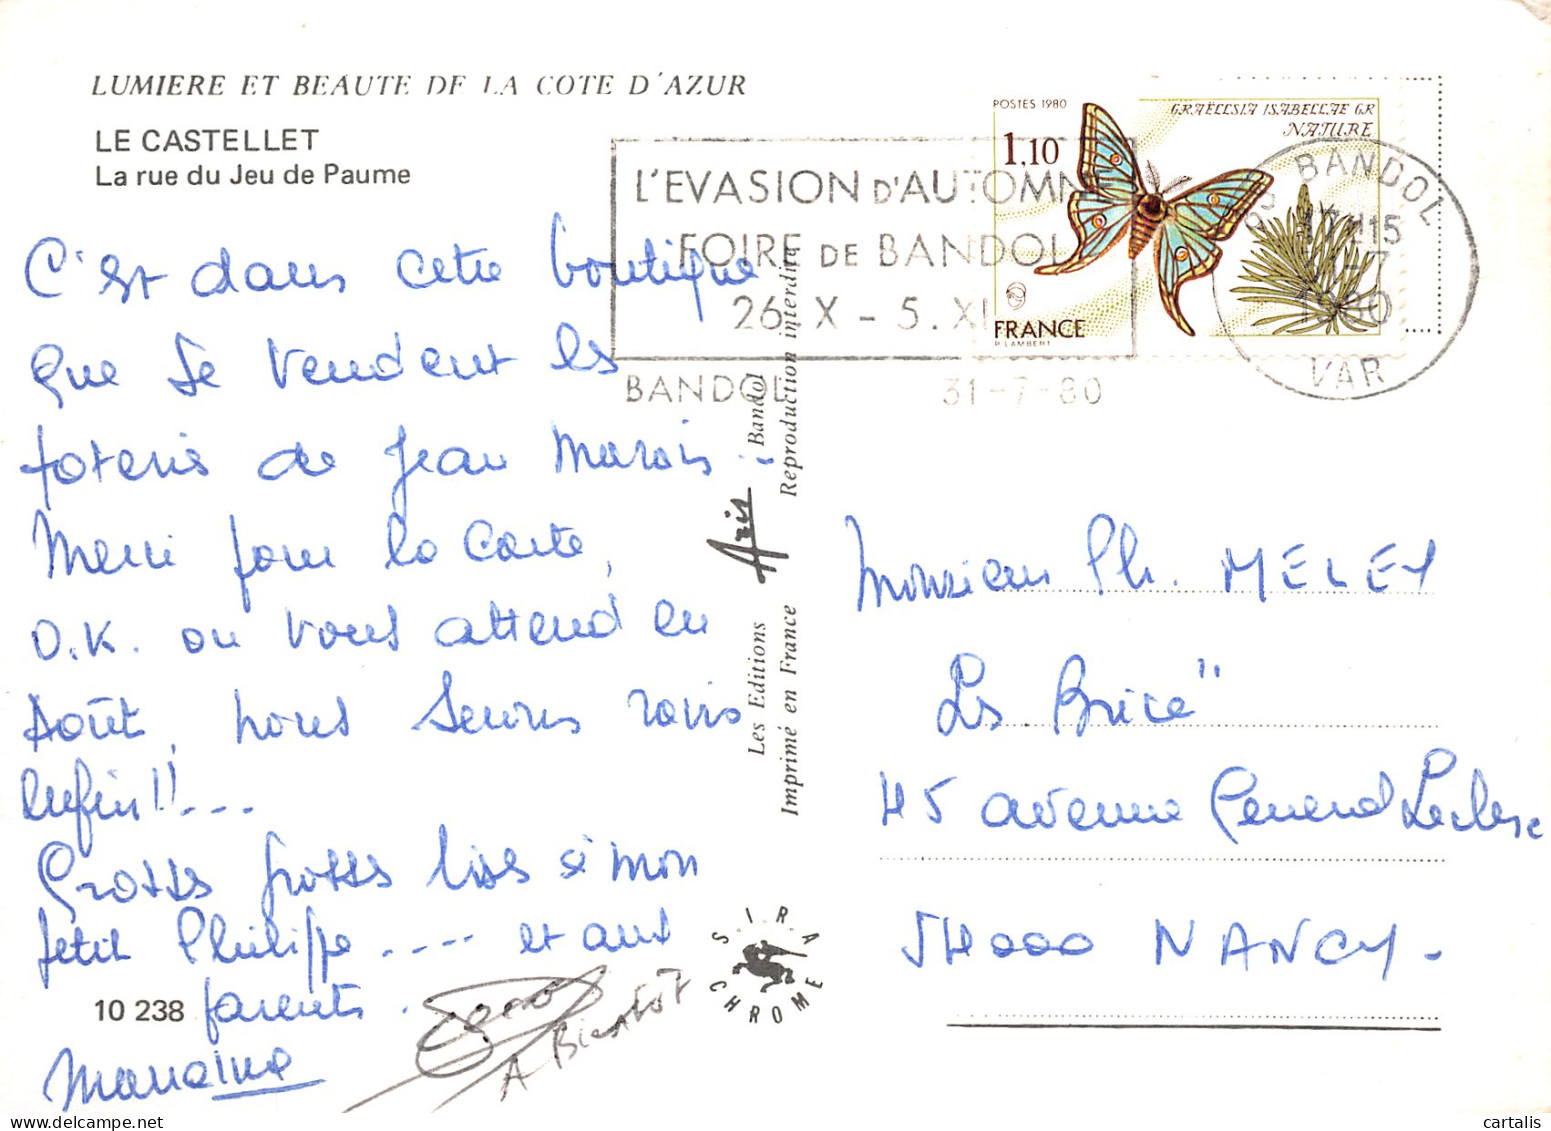 LUMIERE ET BEAUTE DE LA COTE D'AZUR
LE CASTELLET
La rue du Jeu de Paume
C'est dans cette boutique
que se vendent les
poteries de Jean Marais...
Merci pour la carte,
O.K. on vous attend en
Août, nous serons ravis
enfin!!...
Grosses grosses bises à mon
petit Philippe.... et aux
parents.
Marraine
A Bientôt
10 238
POSTES 1980
1,10
GRAËLLSIA ISABELLAE GR
NATURE
FRANCE
P. LAMBERT
L'EVASION D'AUTOMNE
FOIRE DE BANDOL
26.X - 5.XI
BANDOL
31-7-80
83 BANDOL
1980
VAR
Les Editions Aris Bandol
Imprimé en France Reproduction interdite
S.I.R.A
CHROME
Monsieur Ph. MELEY
Les Brice"
45 avenue General Leclerc
54000 NANCY.